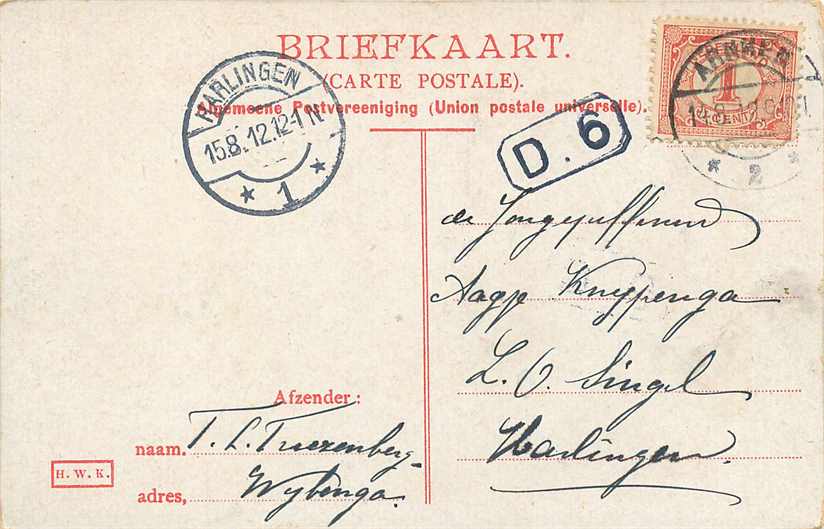 BRIEFKAART.
(CARTE POSTALE).
Algemeene Postvereeniging (Union postale universelle).
HARLINGEN
15.8.12.12-1 N
* 1 *
D. 6
ARNHEM
* 2 *
1
CENT
de
Aagje Knypenga
L. O. Singel
Harlingen.
Afzender:
naam. T. L.
adres, Wybenga.
H. W. K.